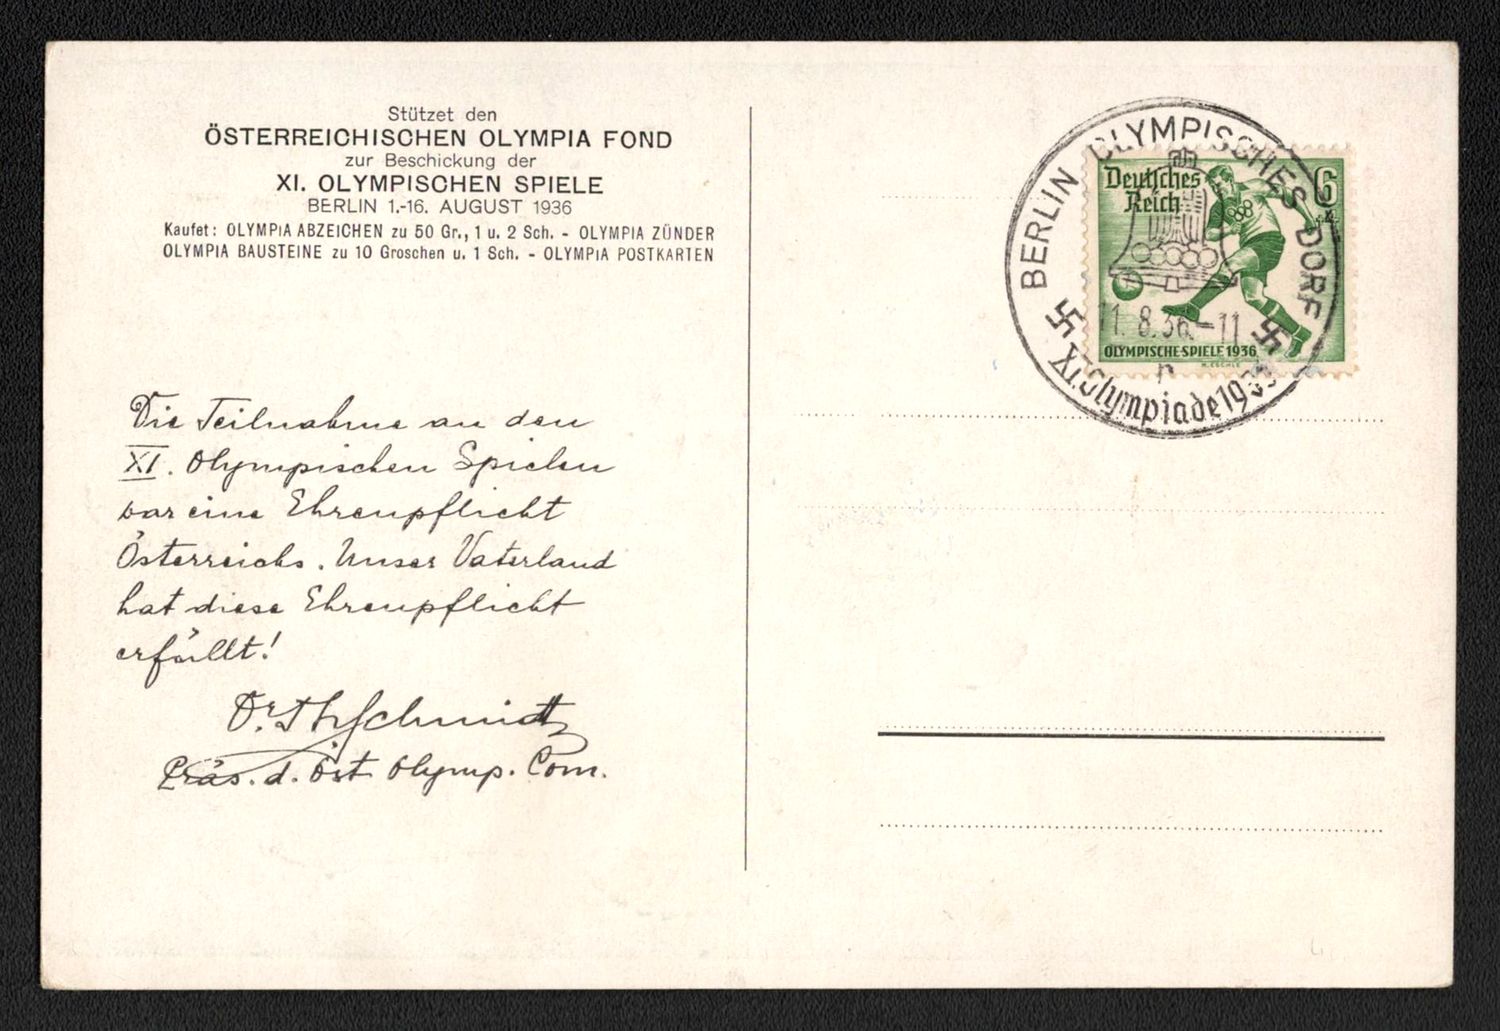 Stützet den
ÖSTERREICHISCHEN OLYMPIA FOND
zur Beschickung der
XI. OLYMPISCHEN SPIELE
BERLIN 1.-16. AUGUST 1936
Kaufet: OLYMPiA ABZEICHEN zu 50 Gr., 1 u. 2 Sch. - OLYMPIA ZÜNDER
OLYMPIA BAUSTEINE zu 10 Groschen u. 1 Sch. - OLYMPiA POSTKARTEN
Die Teilnahme an den
XI. Olympischen Spielen
war eine Ehrenpflicht
Österreichs. Unser Vaterland
hat diese Ehrenpflicht
erfüllt!
Dr. Th Schmidt
Präs. d. Öst. Olymp. Com.
BERLIN OLYMPISCHES DORF
Deutsches
Reich
6
+4
11. 8. 36.-11
OLYMPISCHE SPIELE 1936
M. ESCHLE
XI. Olympiade 1936